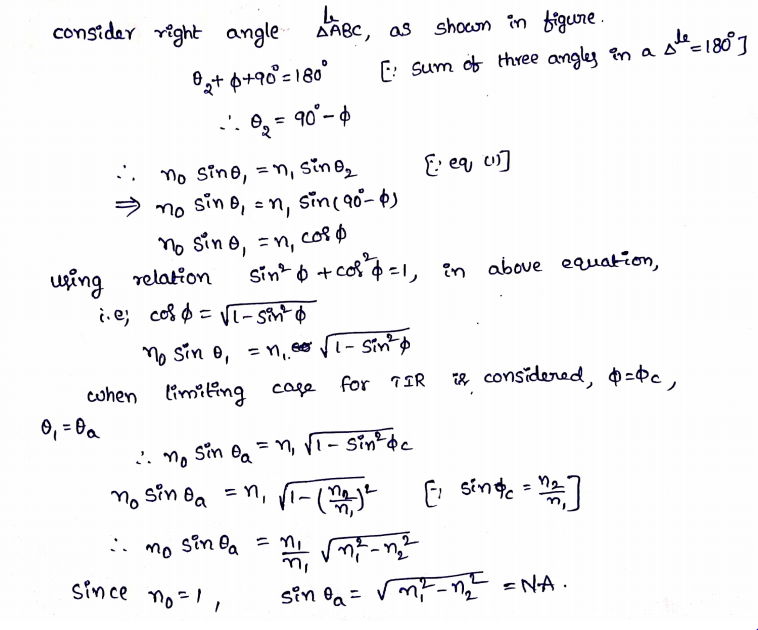 consider right angle Δ^le ABC, as shown in figure.
θ₂ + ϕ + 90° = 180° [∵ sum of three angles in a Δ^le = 180°]
∴ θ₂ = 90° - ϕ
∴ n₀ sin θ₁ = n₁ sin θ₂ [∵ eq (1)]
⇒ n₀ sin θ₁ = n₁ sin(90° - ϕ)
n₀ sin θ₁ = n₁ cos ϕ
using relation sin² ϕ + cos² ϕ = 1, in above equation,
i.e; cos ϕ = √(1 - sin² ϕ)
n₀ sin θ₁ = n₁ √(1 - sin² ϕ)
when limiting case for TIR is considered, ϕ = ϕc,
θ₁ = θa
∴ n₀ sin θa = n₁ √(1 - sin² ϕc)
n₀ sin θa = n₁ √(1 - (n₂/n₁)²) [∵ sin ϕc = n₂/n₁]
∴ n₀ sin θa = n₁/n₁ √(n₁² - n₂²)
since n₀ = 1, sin θa = √(n₁² - n₂²) = NA.